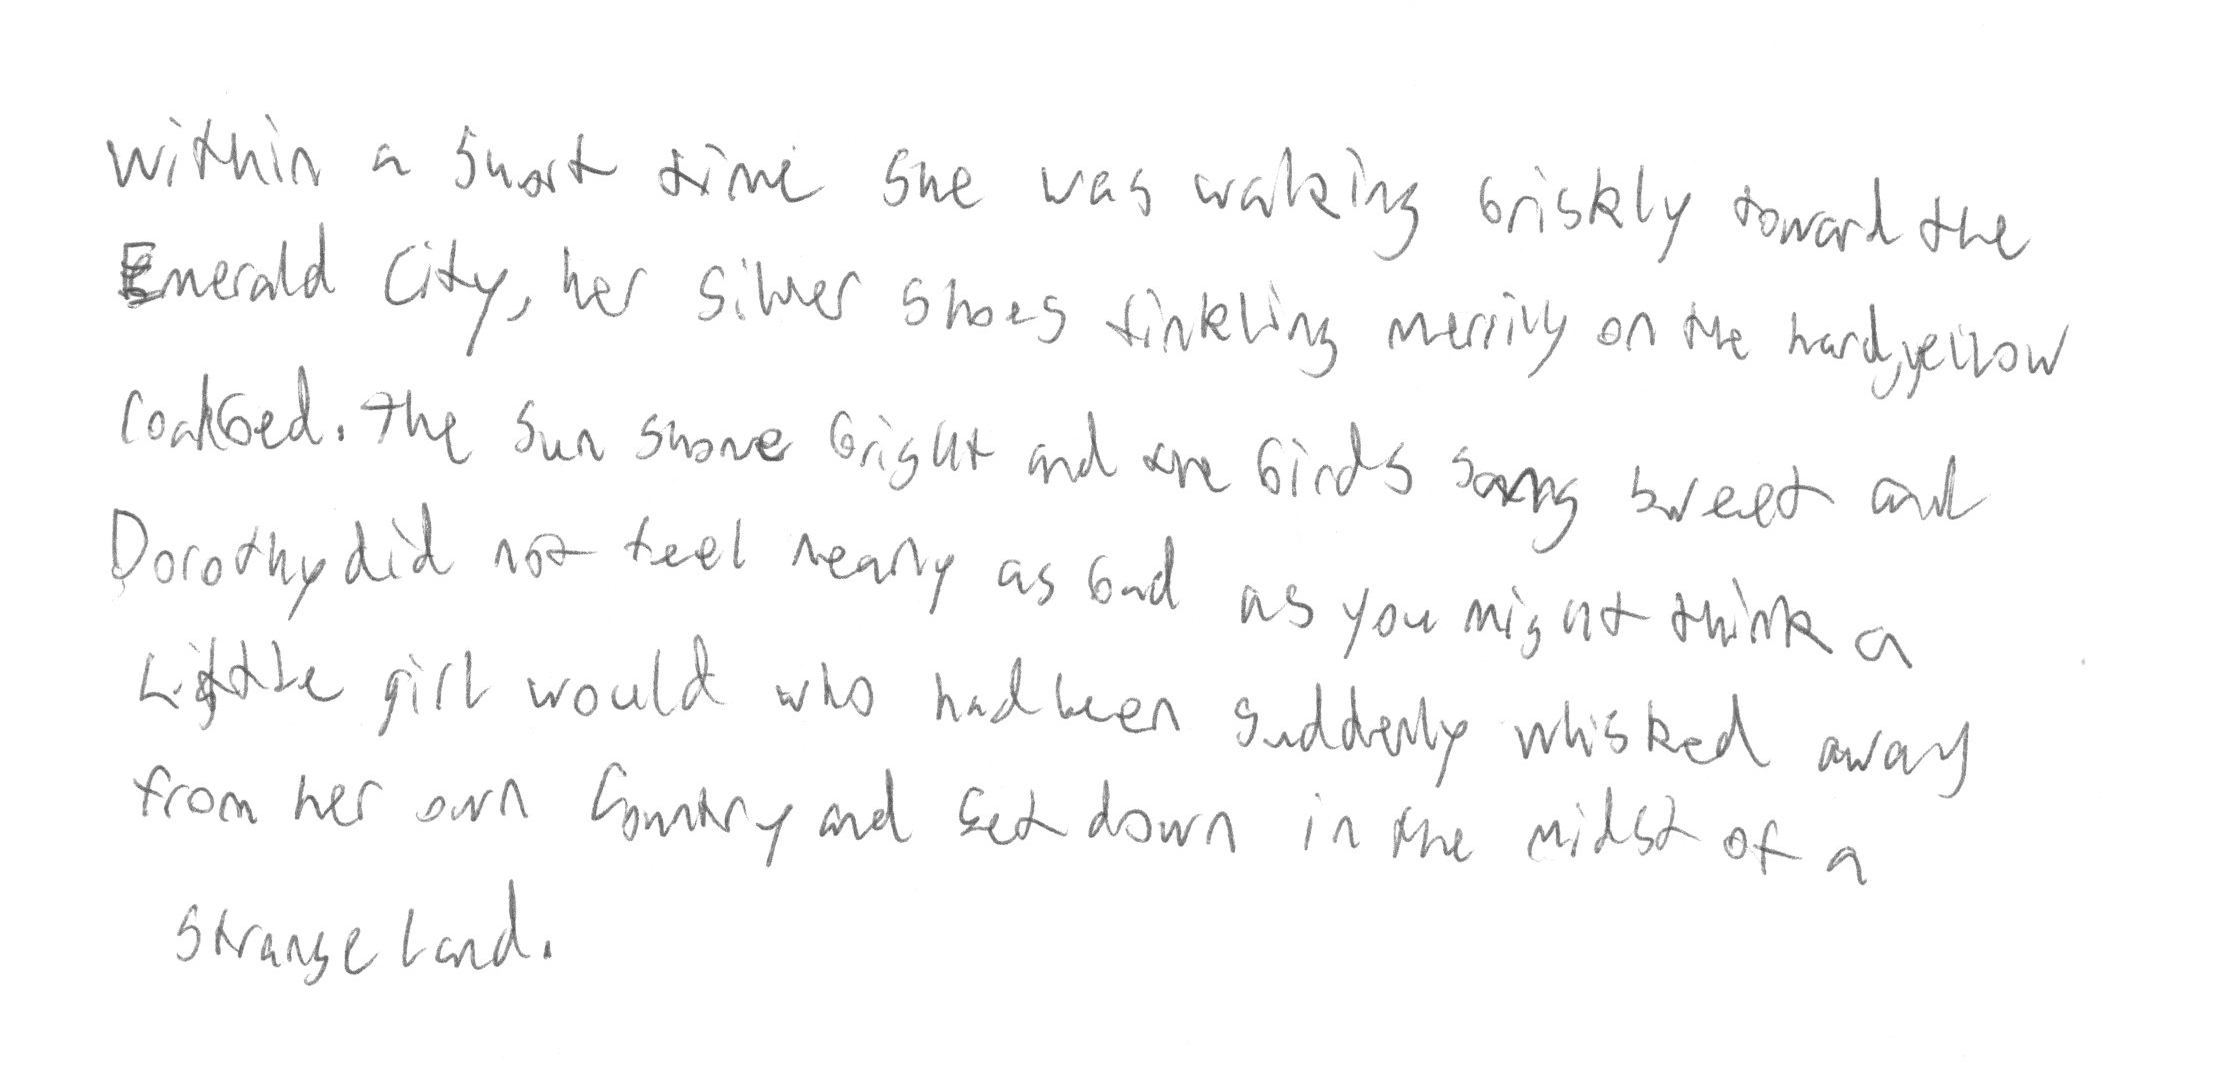 within a short time she was walking briskly toward the
Emerald City, her silver shoes tinkling merrily on the hard, yellow
roadbed. The sun shone bright and the birds sang sweet and
Dorothy did not feel nearly as bad as you might think a
Little girl would who had been suddenly whisked away
from her own country and set down in the midst of a
strange land.